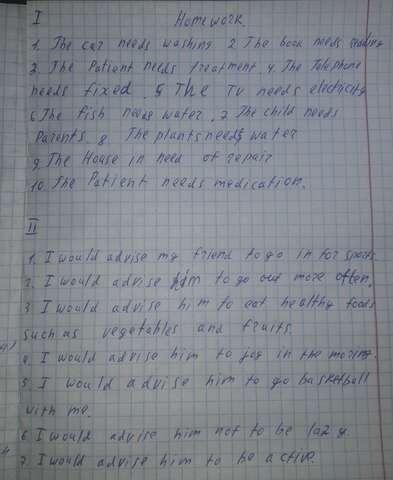 I Homework
1. The car needs washing 2 The book needs reading
3. The Patient needs treatment. 4. The Telephone
needs fixed. 5 The TV needs electricity
6 The fish needs water. 7 The child needs
Parents 8 The plants needs water
9. The House in need of repair
10. The Patient needs medication.
II
1. I would advise my friend to go in for sports.
2. I would advise him to go out more often.
3 I would advise him to eat healthy foods
such as vegetables and fruits.
4. I would advise him to jog in the moring.
5 I would advise him to go basketball
with me.
6. I would advise him not to be lazy.
7. I would advise him to be active.